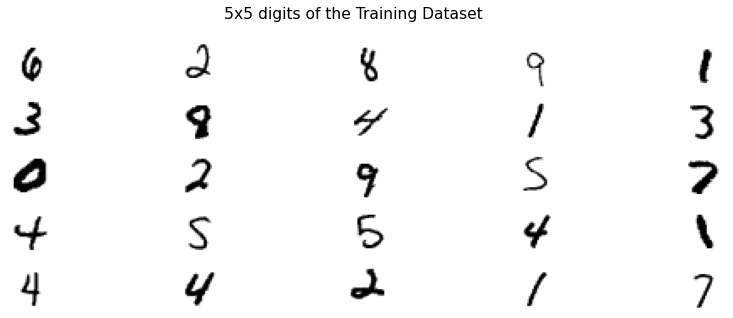 5x5 digits of the Training Dataset
6 2 8 9 1
3 8 4 1 3
0 2 9 5 7
4 5 5 4 1
4 4 2 1 7